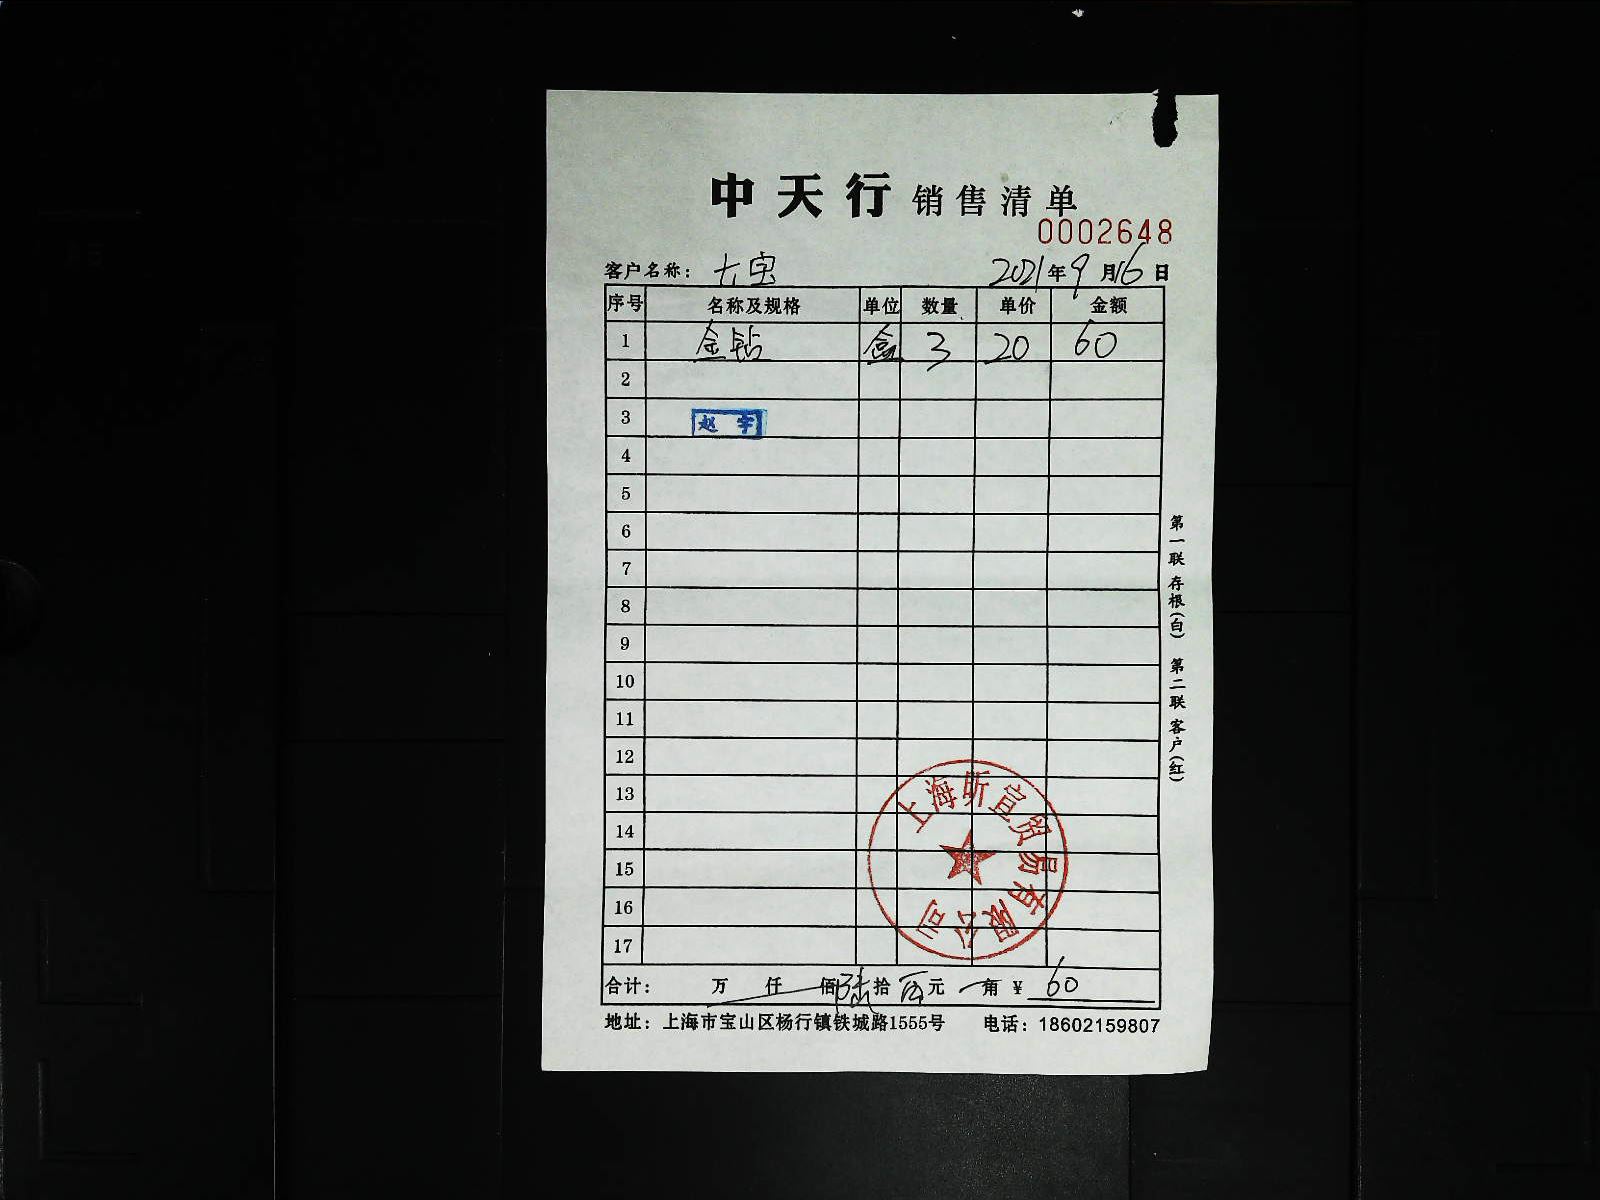 中天行 销售清单
0002648
客户名称： 大宝 2021年9月16日
序号 名称及规格 单位 数量 单价 金额
1 金钻 盒 3 20 60
2
3 赵宇
4
5
6
7
8
9
10
11
12
13
14
15
16
17
上海昕宣贸易有限公司
合计： 万 仟 佰 陆拾 元 角 ¥ 60
地址：上海市宝山区杨行镇铁城路1555号 电话：18602159807
第一联 存根（白） 第二联 客户（红）